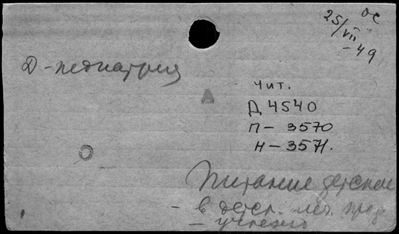 ос
25/VII
-49
Д-педиатрия
Чит.
Д 4540
П - 3570
Н - 3571.
Питание детское
- в детск. леч. пред.